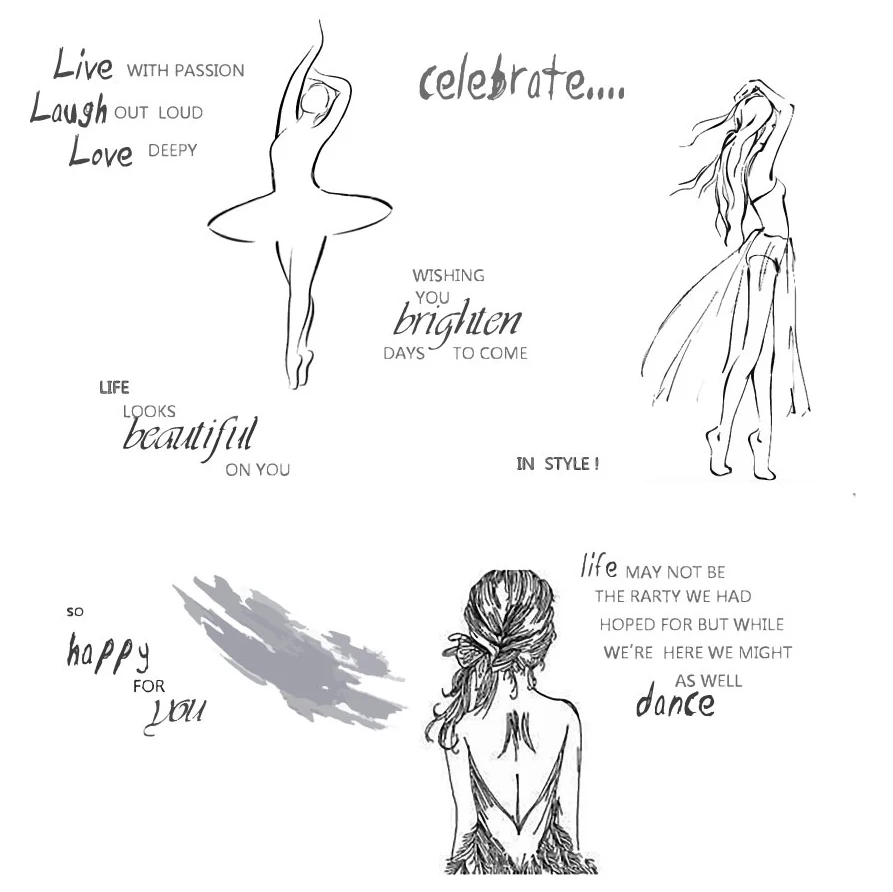 Live WITH PASSION
Laugh OUT LOUD
Love DEEPY
celebrate....
WISHING
YOU
brighten
DAYS TO COME
LIFE
LOOKS
beautiful
ON YOU
IN STYLE !
SO
happy
FOR
you
life MAY NOT BE
THE RARTY WE HAD
HOPED FOR BUT WHILE
WE'RE HERE WE MIGHT
AS WELL
dance